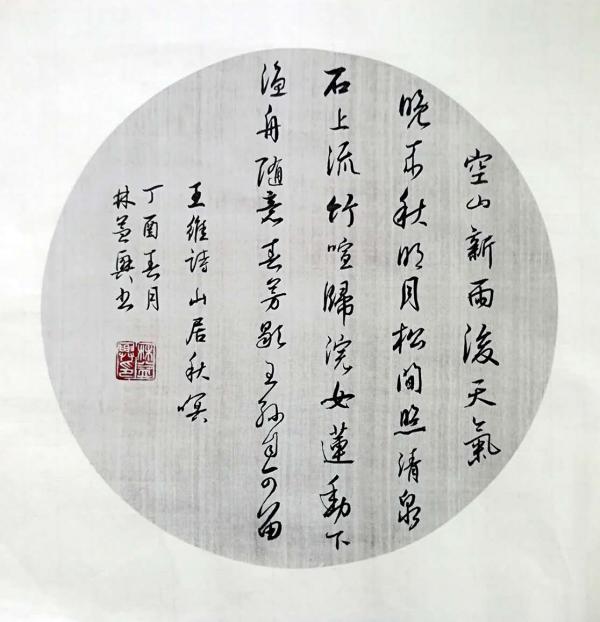 空山新雨後天氣
晚来秋明月松間照清泉
石上流竹喧歸浣女蓮動下
漁舟随意春芳歇王孫自可留
王維詩山居秋暝
丁酉春月
林益興书